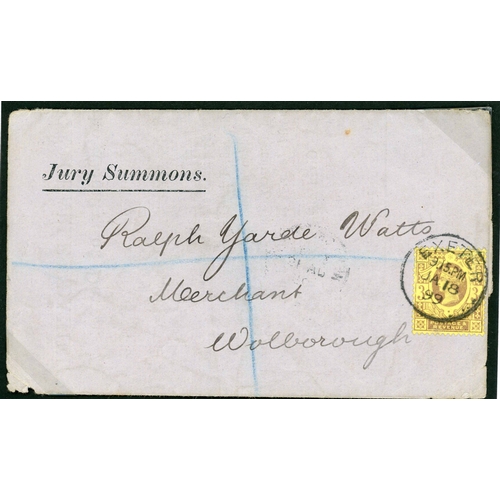 Jury Summons.
Ralph Yarde Watts
Merchant
Wolborough
EXETER
JA 18
99
POSTAGE &
REVENUE